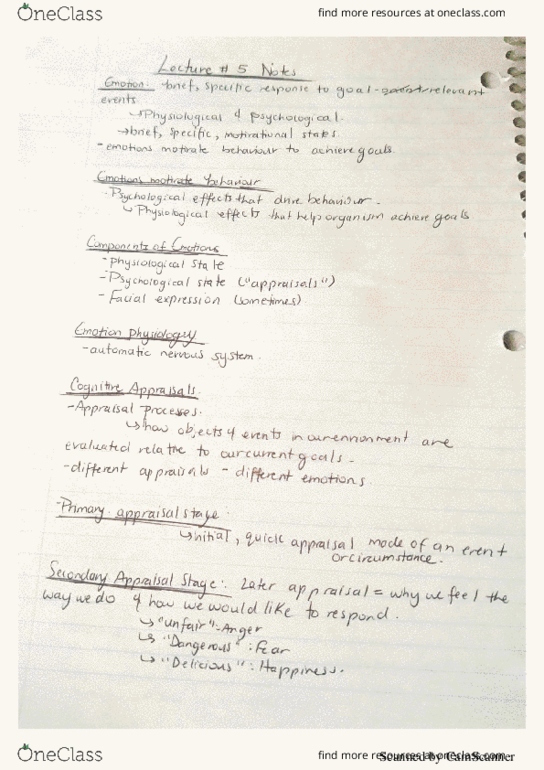 OneClass
find more resources at oneclass.com
Lecture # 5 Notes
Emotion: brief, specific response to goal-relevant
events.
↳Physiological & psychological.
→brief, specific, motivational states.
-emotions motivate behaviour to achieve goals.
Emotions motivate behaviour
-Psychological effects that drive behaviour.
↳Physiological effects that help organism achieve goals
Components of Emotions
-physiological state
-Psychological state ("appraisals")
-Facial expression (sometimes)
Emotion physiology
-automatic nervous system.
Cognitive Appraisals.
-Appraisal processes.
↳how objects & events in our environment are
evaluated relative to our current goals.
-different appraisals - different emotions.
-Primary appraisal stage:
↳initial, quick appraisal mode of an event
or circumstance.
Secondary Appraisal Stage: Later appraisal = why we feel the
way we do & how we would like to respond.
↳"unfair"-Anger
↳"Dangerous": Fear
↳"Delicious": Happiness.
OneClass
find more resources at oneclass.com
Scanned by CamScanner